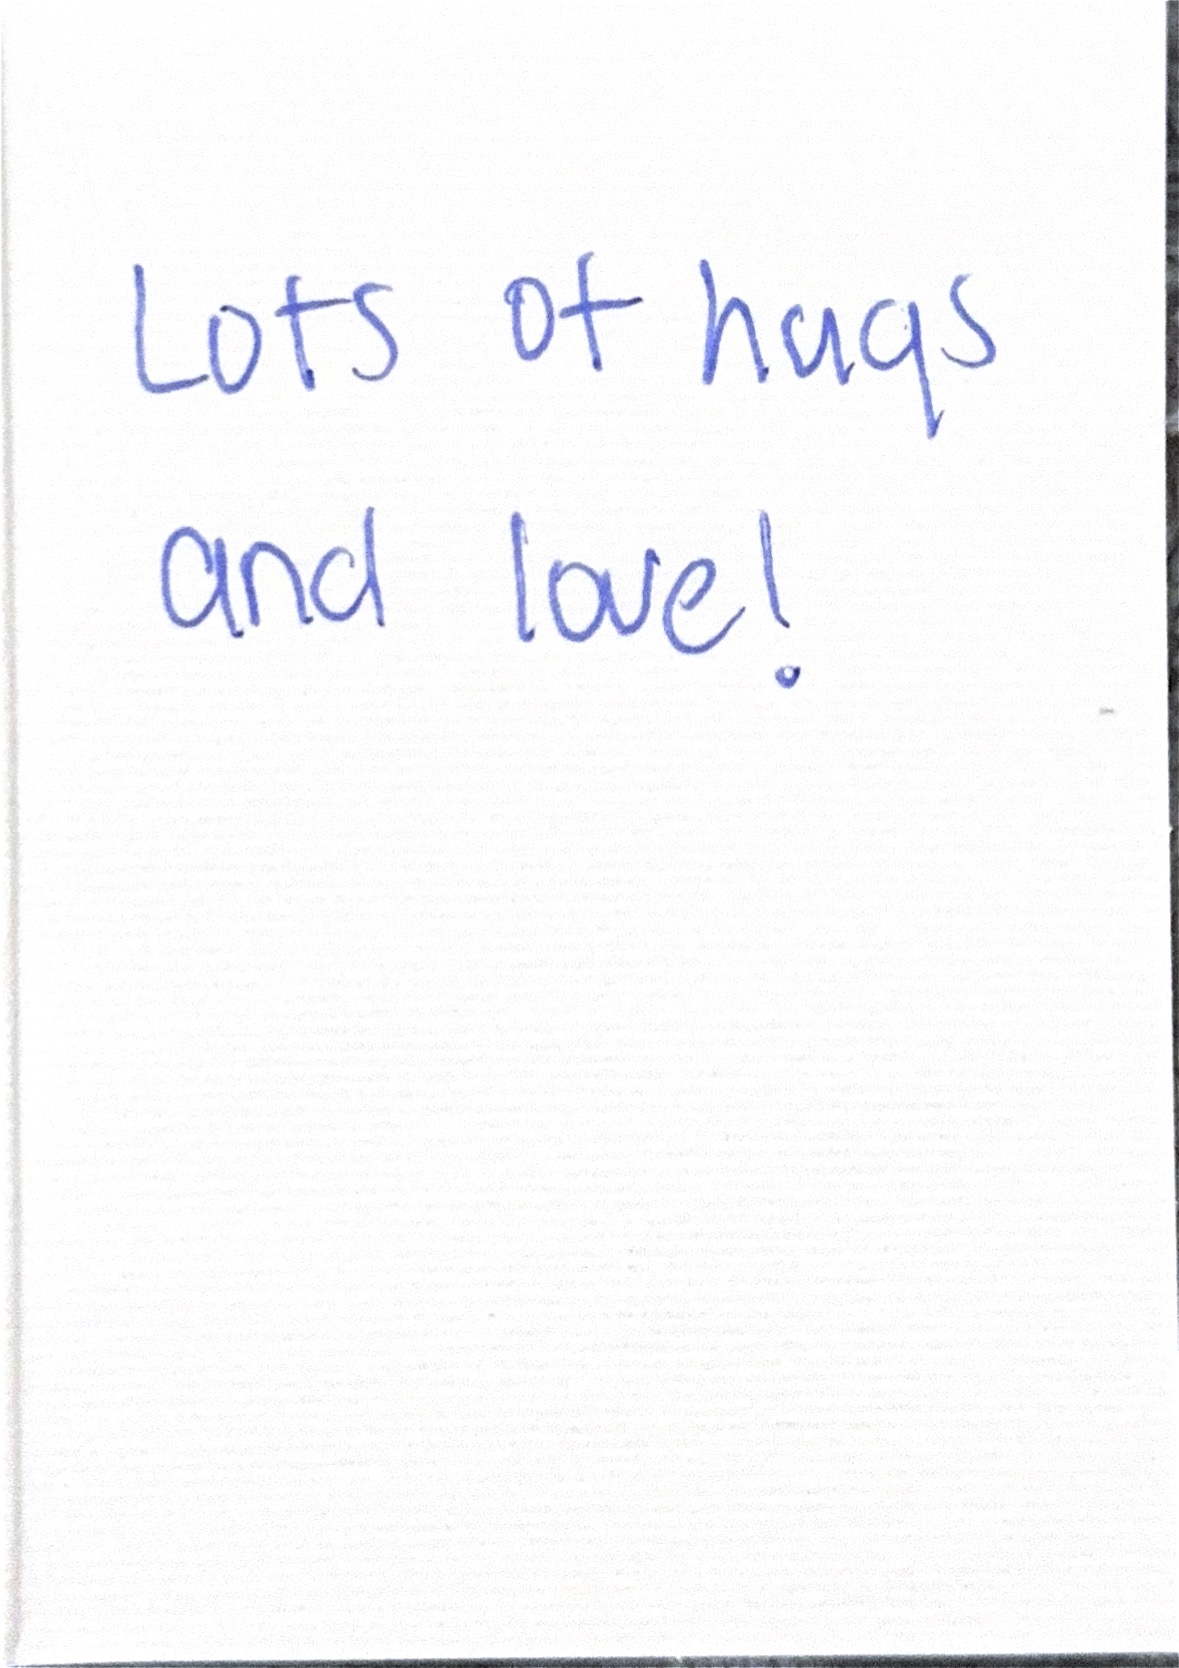 Lots of hugs
and love!